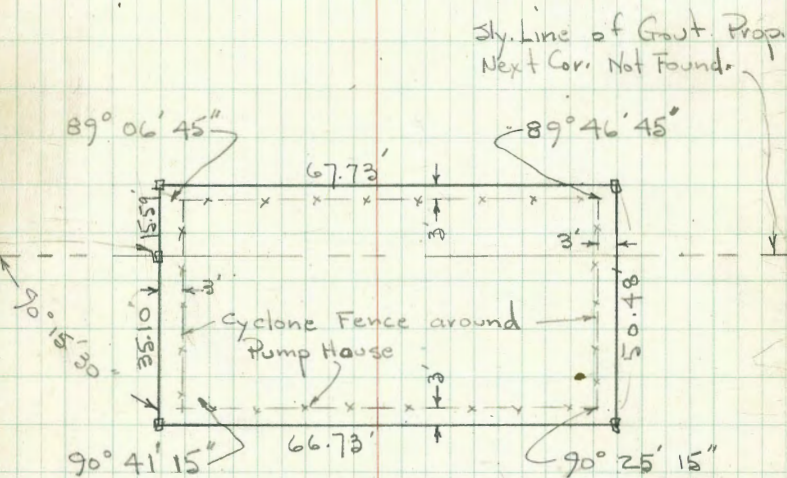 Sly. Line of Govt. Prop.
Next Cor. Not Found.
89° 06' 45"
89° 46' 45"
67.73'
15.59'
3'
3'
3'
35.10'
50.48'
90° 15' 30
Cyclone Fence around
Pump House
3'
66.73'
90° 41' 15"
90° 25' 15"